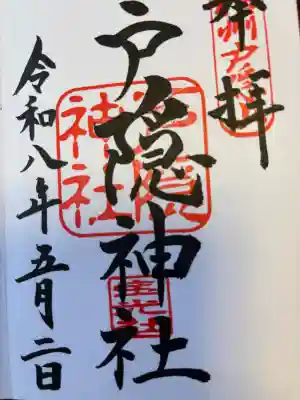 奉拝
戸隠神社
令和八年五月二日
戸隠
神社